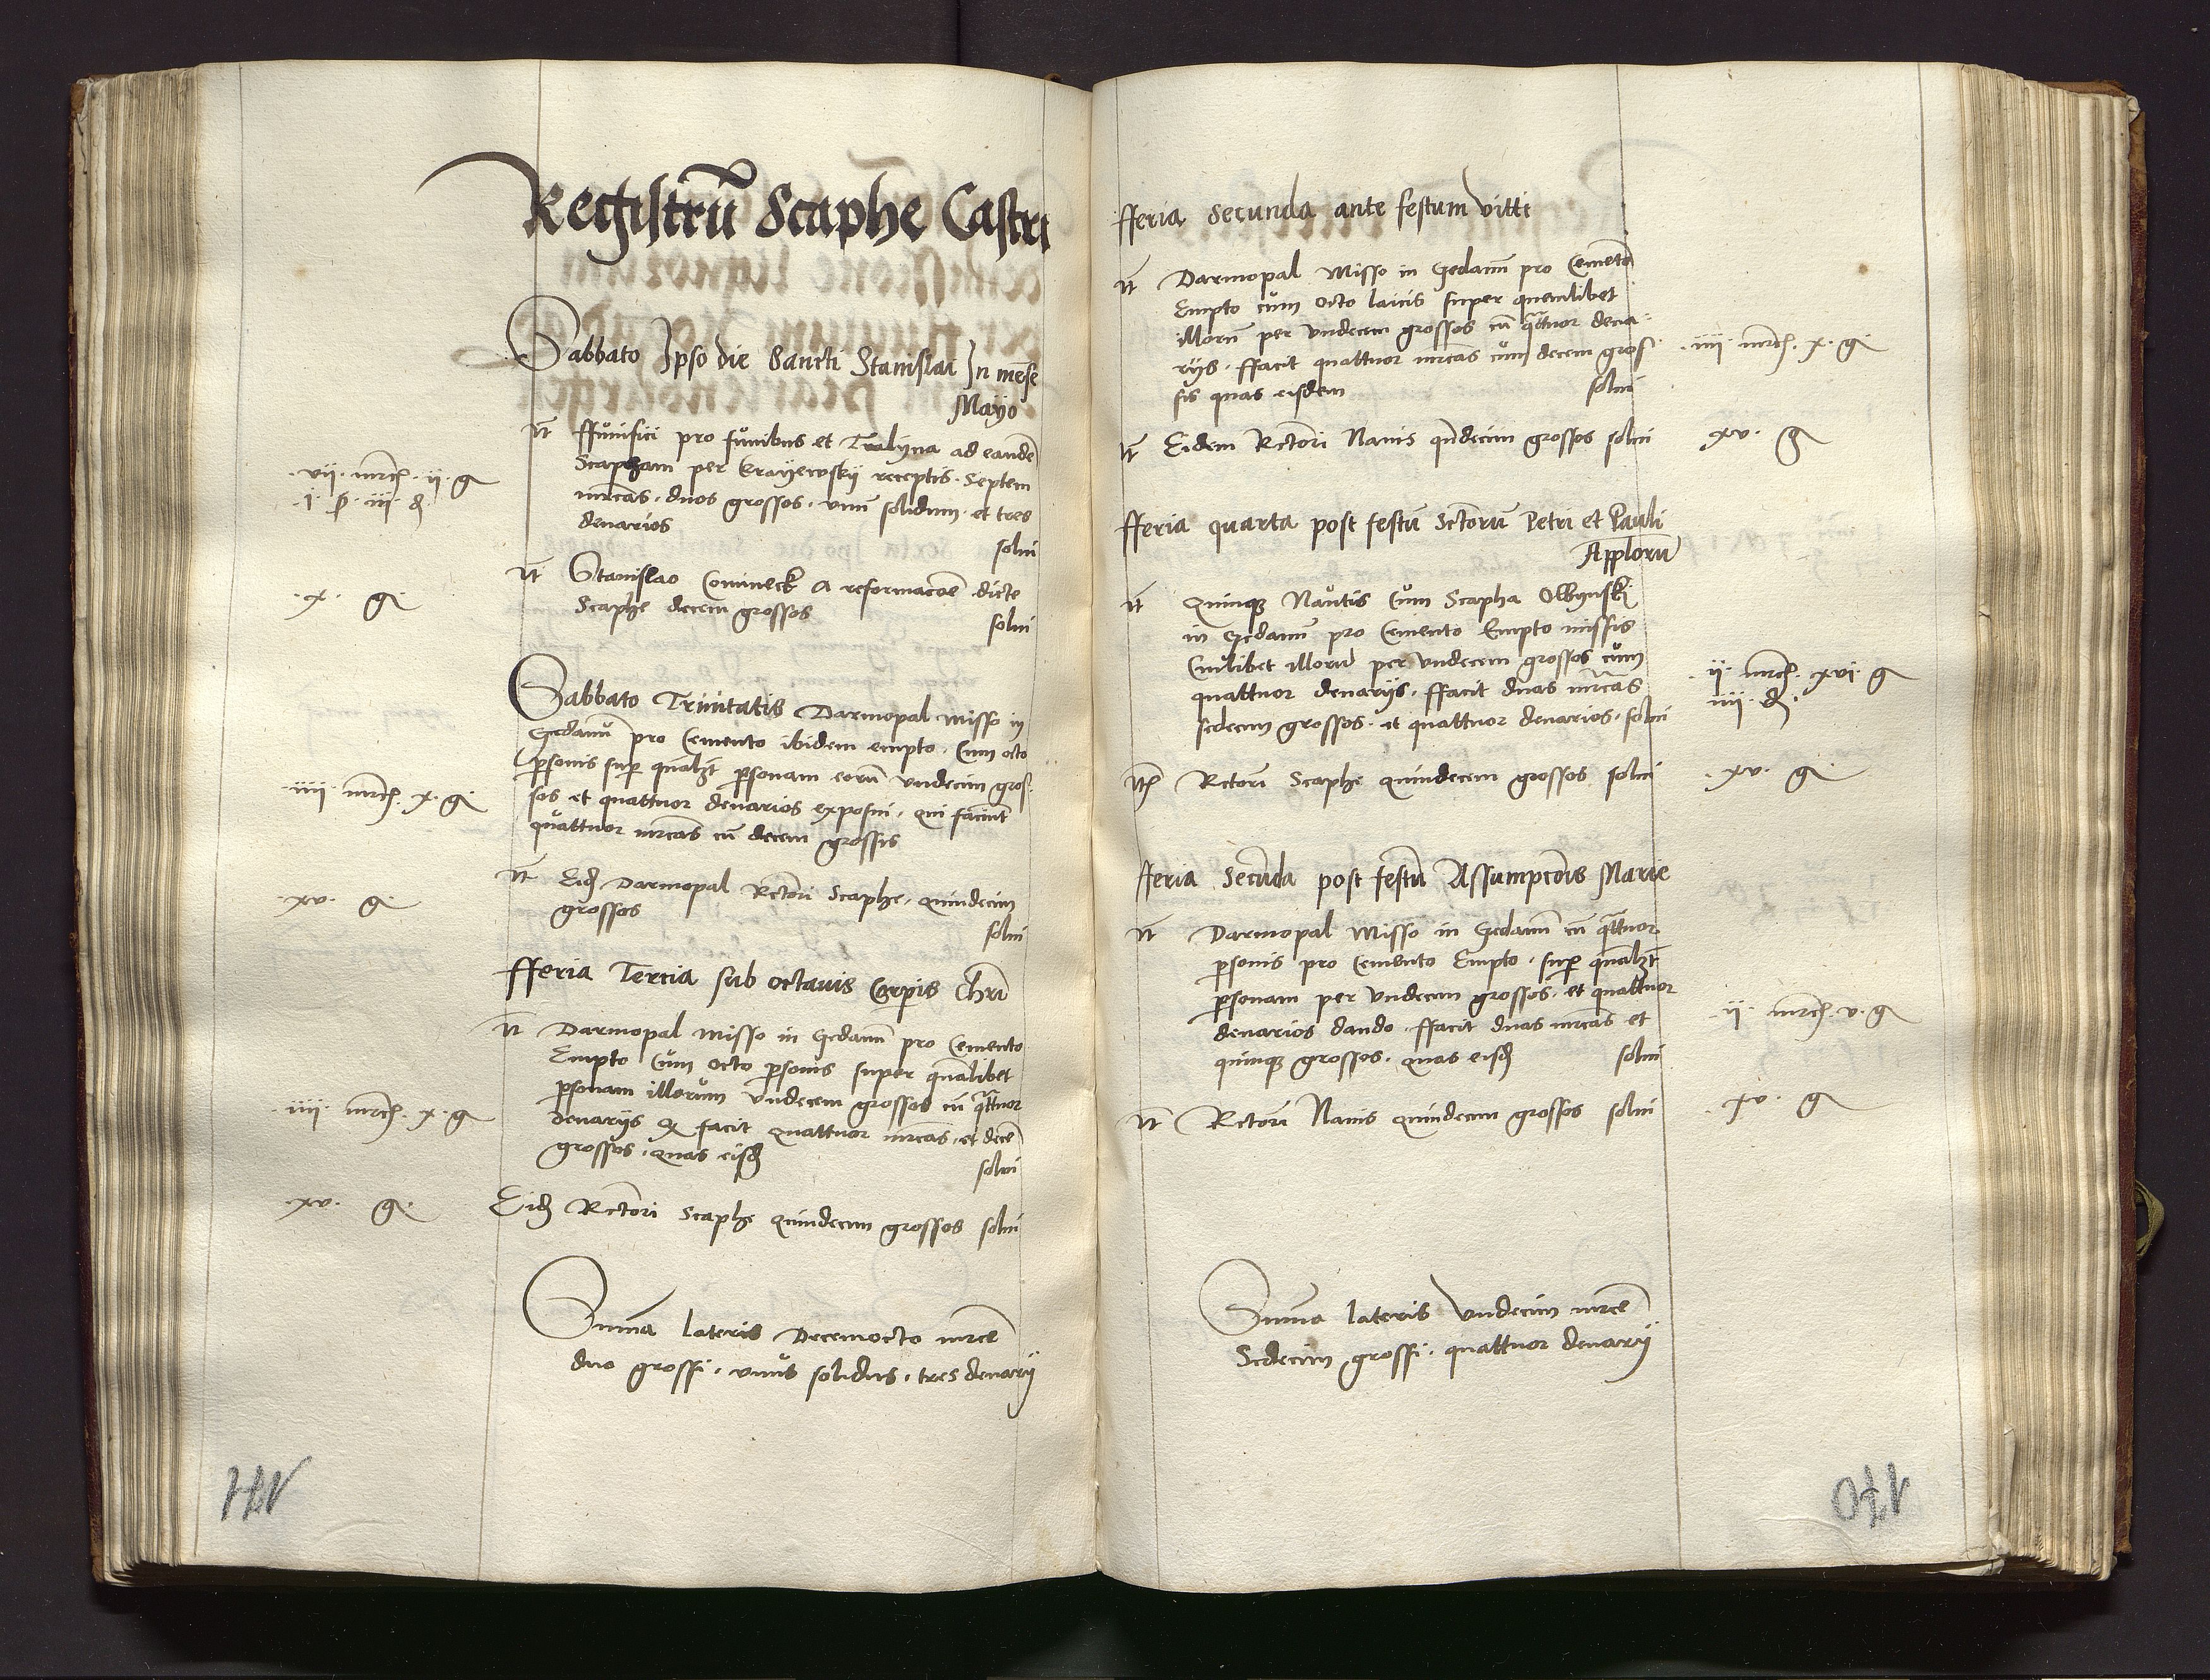 Registrū Scaphe Castri
Sabbato Ipso die Sancti Stanislai In mēse
Mayo
It ffunifici pro funibus et Tralyna ad eandē
Scapham per Crayewskÿ receptis · Septem
mrcas · duos grossos · vnū solidum · et tres
denarios
solui
·vii· mrcħ· ii· g
·i· ß· iii· d·
It Stanislao Commeck A reformacōe dicte
Scaphe decem grossos
solui
·x· g·
Sabbato Trinitatis Darmopal Misso in
Gedanū pro Cemento ibidem empto · Cum octo
psonis sup qualꝫt psonam eorū vndecim gros-
sos et quattuor denarios exposui · qui faciūt
quattuor mrcas cū decem grossis
·iiii· mrcħ· x· g·
It Eidꝫ Darmopal Rctori Scaphe · quindecim
grossos
solui
·xv· g·
fferia Tercia sub octauis Corpis Chrī
It Darmopal Misso in Gedanū pro Cemento
Empto Cum octo psonis super qualibet
psonam illorum vndecem grossos cū qttuor
denariis facit quattuor mrcas · et decē
grossos · quas eisdꝫ
solui
·iiii· mrcħ· x· g
Eidꝫ Rctori Scaphe quindecim grossos solui
·xv· g·
Summa lateris Decemocto mrce
duo grossi · vnus solidus · tres denarij
fferia secunda ante festum vitti
It Darmopal Misso in Gedanū pro Cemeto
Empto cum octo laicis super quemlibet
illorū per vndecem grossos cū qttuor dena-
rijs · ffacit quattuor mrcas cum decem gros-
sis quas eisdem solui
·iiii· mrcħ· x· g·
It Eidem Rctori Nauis qndecim grossos solui
xv· g
fferia quarta post festū Sctorū Petri et Pauli
Applorū
It Quinqꝫ Nautis Cum Scapha Olbynskj
in Gedanū pro Cemento Empto missis
Cuilibet illorū per vndecem grossos cum
quattuor denarijs · ffacit duas mrcas
sedecim grossos · et quattuor denarios · solui
·ii· mrcħ· xvi· g
iiii· d·
Itꝫ Rctori Scaphe quindecem grossos solui
·xv· g·
fferia Secūda post festū Assumpcōis Marie
It Darmopal Misso in Gedanū cū qttuor
psonis pro Cemento Empto · sup qualꝫt
psonam per vndecim grossos · et quattuor
denarios dando · ffacit duas mrcas et
quinqꝫ grossos · quas eisdꝫ solui
·ii· mrcħ· v· g
It Rctori Nauis quindecim grossos solui
·xv· g·
Summa lateris vndecim mrce
Sedecim grossi · quattuor denarij